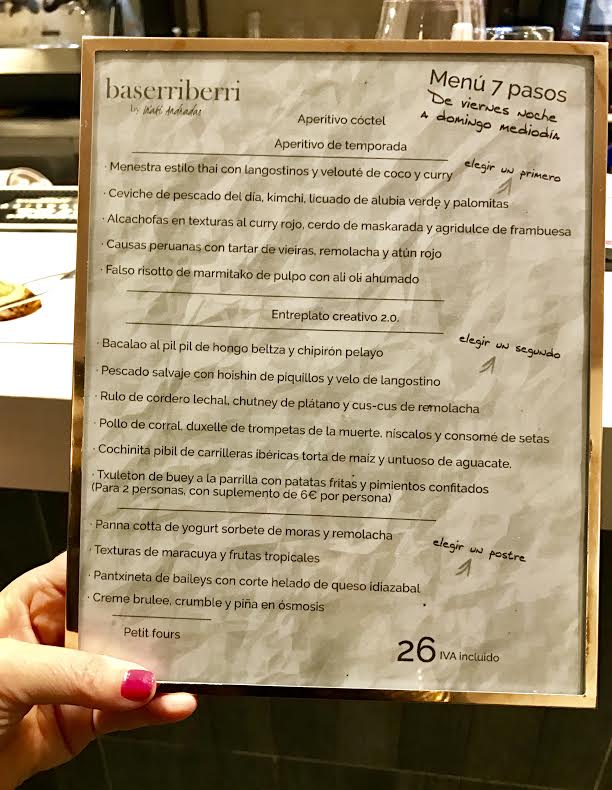 baserriberri
by Iñaki Andradas
Menú 7 pasos
De viernes noche
A domingo mediodía
Aperitivo cóctel
Aperitivo de temporada
elegir un primero
· Menestra estilo thai con langostinos y velouté de coco y curry
· Ceviche de pescado del día, kimchi, licuado de alubia verde y palomitas
· Alcachofas en texturas al curry rojo, cerdo de maskarada y agridulce de frambuesa
· Causas peruanas con tartar de vieiras, remolacha y atún rojo
· Falso risotto de marmitako de pulpo con ali oli ahumado
Entreplato creativo 2.0.
elegir un segundo
· Bacalao al pil pil de hongo beltza y chipirón pelayo
· Pescado salvaje con hoishin de piquillos y velo de langostino
· Rulo de cordero lechal, chutney de plátano y cus-cus de remolacha
· Pollo de corral, duxelle de trompetas de la muerte, níscalos y consomé de setas
· Cochinita pibil de carrilleras ibéricas torta de maíz y untuoso de aguacate.
· Txuleton de buey a la parrilla con patatas fritas y pimientos confitados
(Para 2 personas, con suplemento de 6€ por persona)
· Panna cotta de yogurt sorbete de moras y remolacha
elegir un postre
· Texturas de maracuya y frutas tropicales
· Pantxineta de baileys con corte helado de queso idiazabal
· Creme brulee, crumble y piña en ósmosis
Petit fours
26 IVA incluido